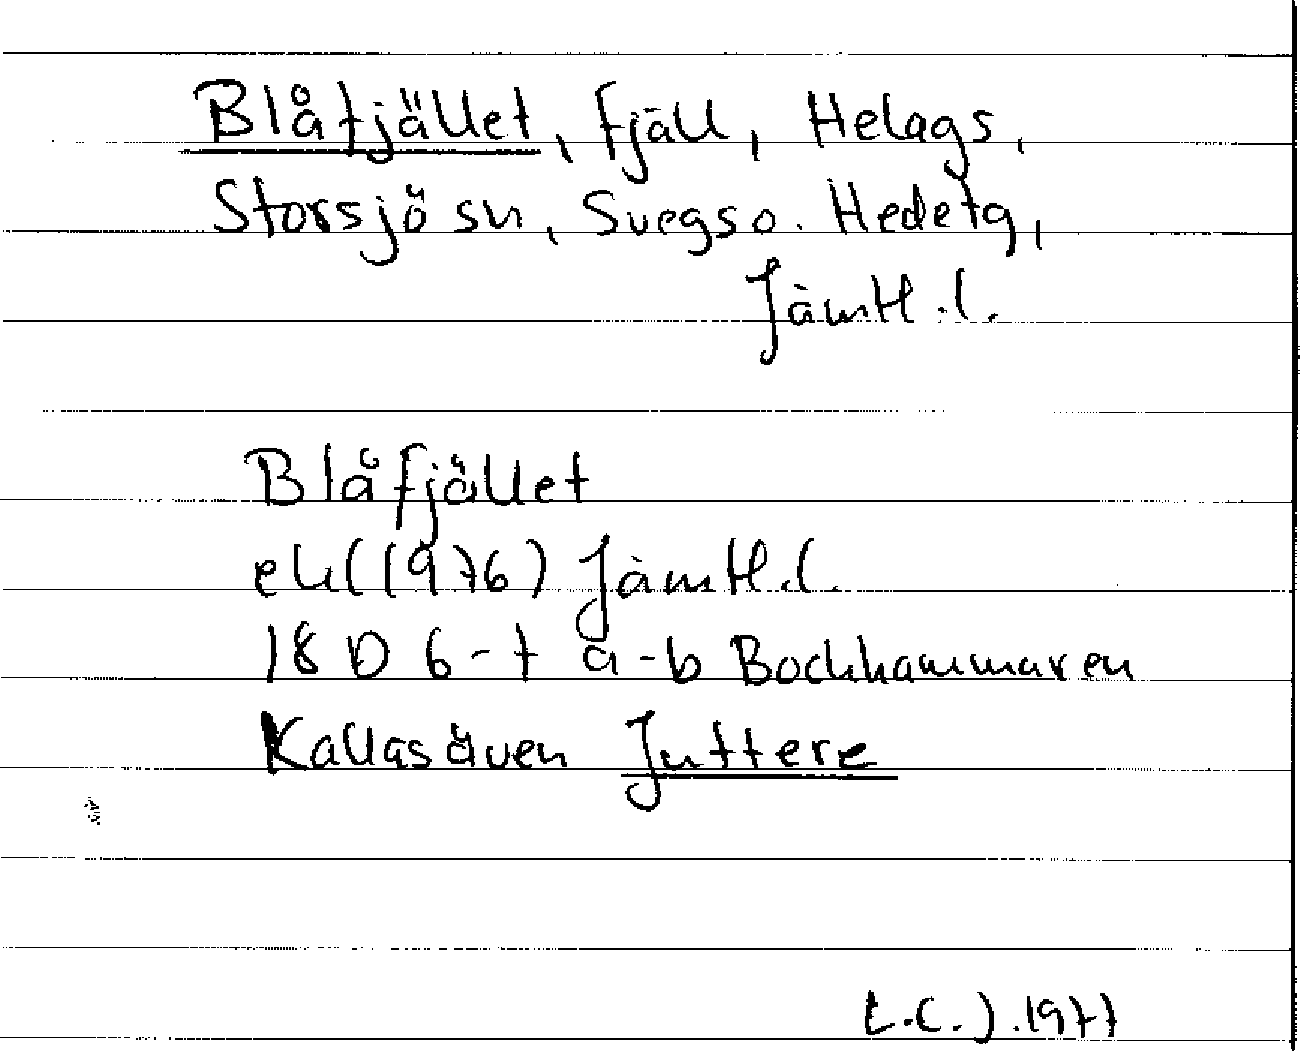 Blåfjället, fjäll, Helags,
Storsjö sn, Svegs o. Hede tg,
Jämtl. l.
Blåfjället
ek (1976) Jämtl. l.
18 D 6-7 a-b Bockhammaren
Kallasäven Juttere
L.C.J. 1977